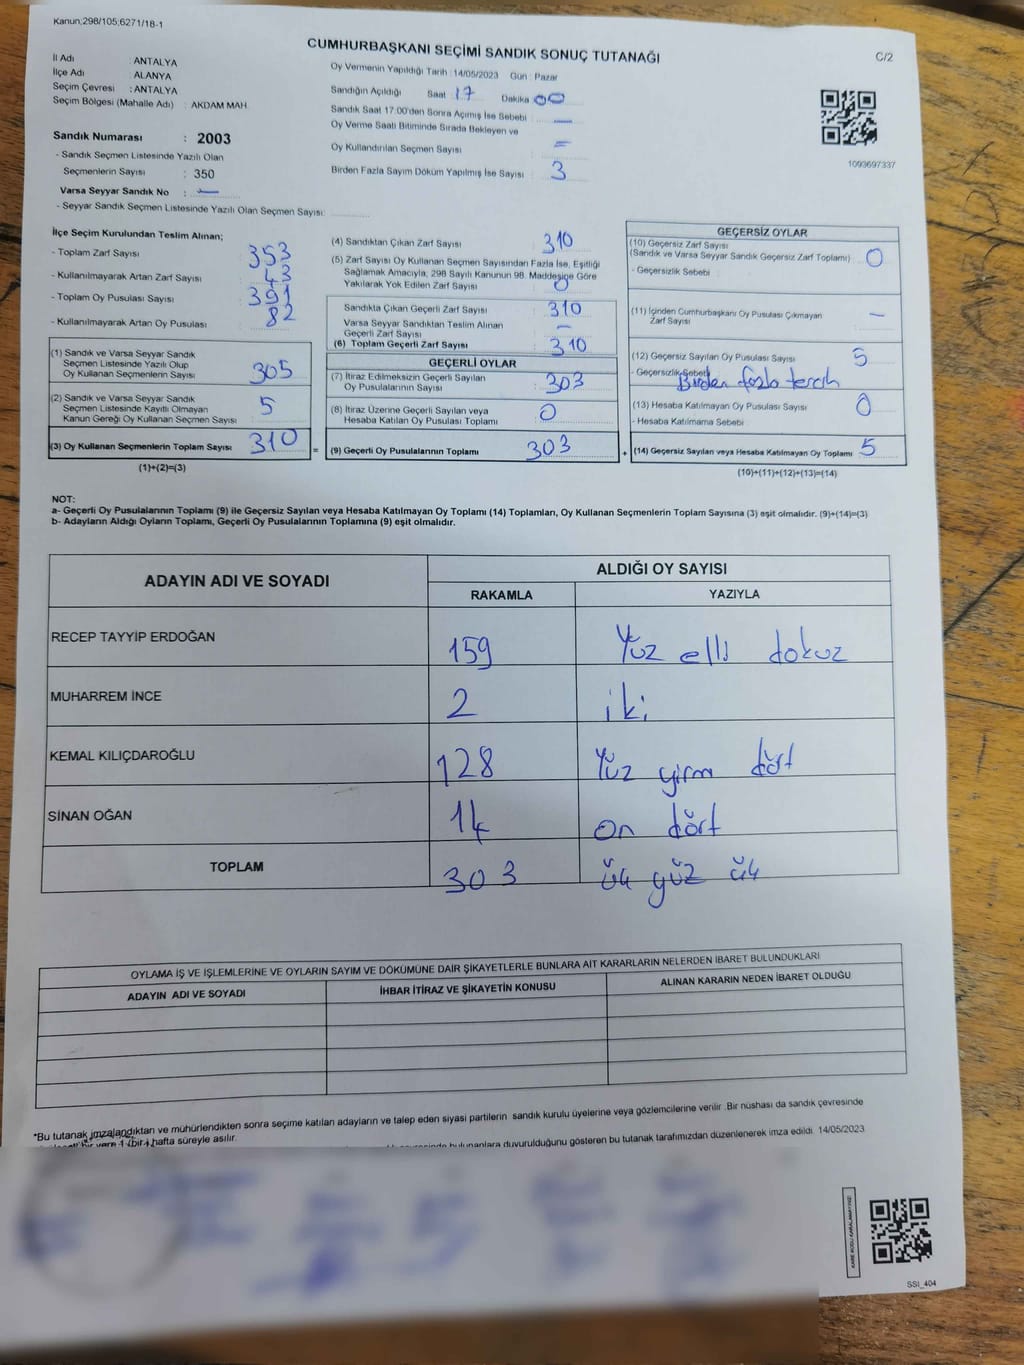 Kanun;298/105;6271/18-1
CUMHURBAŞKANI SEÇİMİ SANDIK SONUÇ TUTANAĞI
C/2
İl Adı : ANTALYA
İlçe Adı : ALANYA
Seçim Çevresi : ANTALYA
Seçim Bölgesi (Mahalle Adı) : AKDAM MAH.
Sandık Numarası : 2003
- Sandık Seçmen Listesinde Yazılı Olan
Seçmenlerin Sayısı : 350
Varsa Seyyar Sandık No : —
- Seyyar Sandık Seçmen Listesinde Yazılı Olan Seçmen Sayısı:
Oy Vermenin Yapıldığı Tarih : 14/05/2023 Gün : Pazar
Sandığın Açıldığı Saat 17 Dakika 00
Sandık Saat 17.00'den Sonra Açımış İse Sebebi : —
Oy Verme Saati Bitiminde Sırada Bekleyen ve
Oy Kullandırılan Seçmen Sayısı : =
Birden Fazla Sayım Döküm Yapılmış İse Sayısı : 3
1093697337
İlçe Seçim Kurulundan Teslim Alınan;
- Toplam Zarf Sayısı : 353
- Kullanılmayarak Artan Zarf Sayısı : 43
- Toplam Oy Pusulası Sayısı : 391
- Kullanılmayarak Artan Oy Pusulası : 82
(1) Sandık ve Varsa Seyyar Sandık
Seçmen Listesinde Yazılı Olup
Oy Kullanan Seçmenlerin Sayısı : 305
(2) Sandık ve Varsa Seyyar Sandık
Seçmen Listesinde Kayıtlı Olmayan
Kanun Gereği Oy Kullanan Seçmen Sayısı : 5
(3) Oy Kullanan Seçmenlerin Toplam Sayısı : 310
(1)+(2)=(3)
(4) Sandıktan Çıkan Zarf Sayısı : 310
(5) Zarf Sayısı Oy Kullanan Seçmen Sayısından Fazla İse, Eşitliği
Sağlamak Amacıyla, 298 Sayılı Kanunun 98. Maddesine Göre
Yakılarak Yok Edilen Zarf Sayısı : 0
Sandıkta Çıkan Geçerli Zarf Sayısı : 310
Varsa Seyyar Sandıktan Teslim Alınan
Geçerli Zarf Sayısı : —
(6) Toplam Geçerli Zarf Sayısı : 310
GEÇERLİ OYLAR
(7) İtiraz Edilmeksizin Geçerli Sayılan
Oy Pusulalarının Sayısı : 303
(8) İtiraz Üzerine Geçerli Sayılan veya
Hesaba Katılan Oy Pusulası Toplamı : 0
= (9) Geçerli Oy Pusulalarının Toplamı : 303
GEÇERSİZ OYLAR
(10) Geçersiz Zarf Sayısı
(Sandık ve Varsa Seyyar Sandık Geçersiz Zarf Toplamı) : 0
- Geçersizlik Sebebi :
(11) İçinden Cumhurbaşkanı Oy Pusulası Çıkmayan
Zarf Sayısı : —
(12) Geçersiz Sayılan Oy Pusulası Sayısı : 5
- Geçersizlik Sebebi : Birden fazla tercih
(13) Hesaba Katılmayan Oy Pusulası Sayısı : 0
- Hesaba Katılmama Sebebi :
+ (14) Geçersiz Sayılan veya Hesaba Katılmayan Oy Toplamı : 5
(10)+(11)+(12)+(13)=(14)
NOT:
a- Geçerli Oy Pusulalarının Toplamı (9) ile Geçersiz Sayılan veya Hesaba Katılmayan Oy Toplamı (14) Toplamları, Oy Kullanan Seçmenlerin Toplam Sayısına (3) eşit olmalıdır. (9)+(14)=(3)
b- Adayların Aldığı Oyların Toplamı, Geçerli Oy Pusulalarının Toplamına (9) eşit olmalıdır.
ADAYIN ADI VE SOYADI
ALDIĞI OY SAYISI
RAKAMLA YAZIYLA
RECEP TAYYİP ERDOĞAN 159 Yüz elli dokuz
MUHARREM İNCE 2 iki
KEMAL KILIÇDAROĞLU 128 Yüz yirm dört
SİNAN OĞAN 14 on dört
TOPLAM 303 üç yüz üç
OYLAMA İŞ VE İŞLEMLERİNE VE OYLARIN SAYIM VE DÖKÜMÜNE DAİR ŞİKAYETLERLE BUNLARA AİT KARARLARIN NELERDEN İBARET BULUNDUKLARI
ADAYIN ADI VE SOYADI İHBAR İTİRAZ VE ŞİKAYETİN KONUSU ALINAN KARARIN NEDEN İBARET OLDUĞU
*Bu tutanak imzalandıktan ve mühürlendikten sonra seçime katılan adayların ve talep eden siyasi partilerin sandık kurulu üyelerine veya gözlemcilerine verilir. Bir nüshası da sandık çevresinde
bir yere 1 (bir) hafta süreyle asılır.
bulunanlara duyurulduğunu gösteren bu tutanak tarafımızdan düzenlenerek imza edildi. 14/05/2023
SSI_404